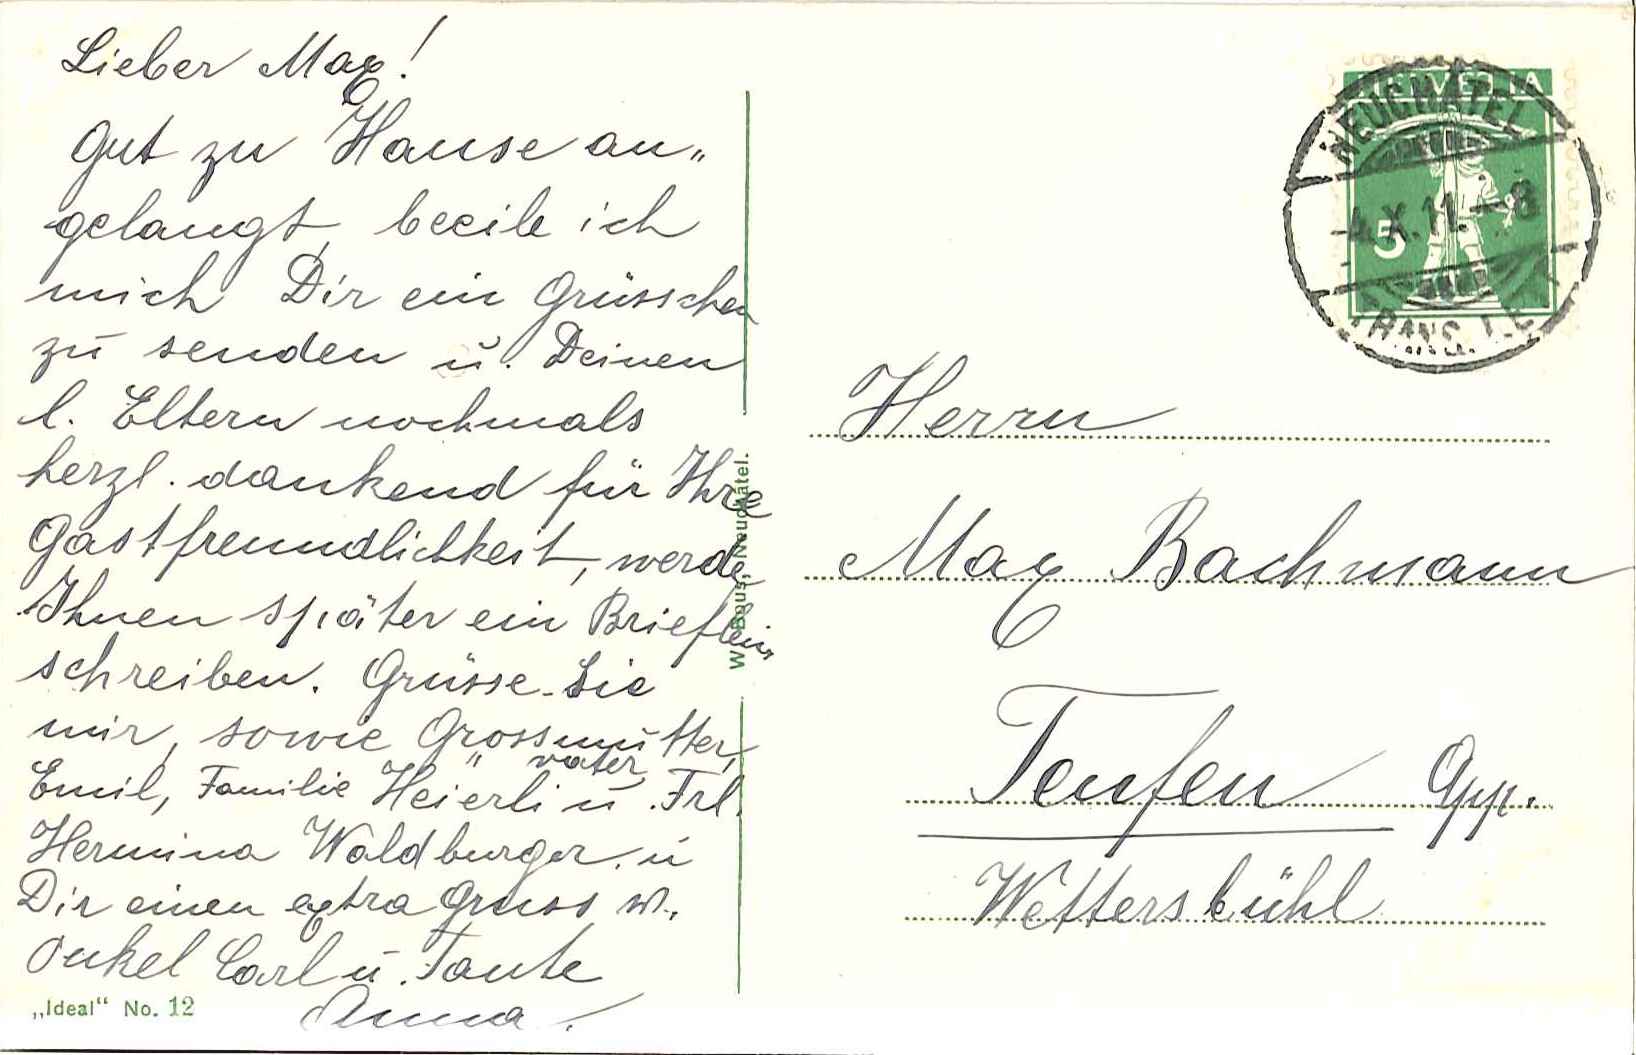 Lieber Max!
Gut zu Hause an„
gelangt, beeile ich
mich Dir ein Grüsschen
zu senden u. Deinen
l. Eltern nochmals
herzl. dankend für Ihre
Gastfreundlichkeit, werde
Ihnen später ein Brieflein
schreiben. Grüsse Sie
mir, sowie Grossmutter,
" vater,
Emil, Familie Heierli u. Frl.
Hermina Waldburger. u
Dir einen extra Gruss v.
Onkel Carl u. Tante
Anna.
„Ideal“ No. 12
W. Bous, Neuchâtel.
HELVETIA
5
NEUCHATEL
-4.X.11.-8
Herrn
Max Bachmann
Teufen App.
Wettersbühl